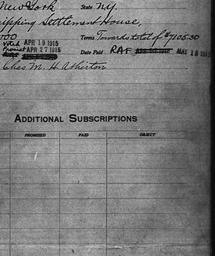 New York State N.Y.
ipping Settlement House,
000 Terms Towards total of $70500
Voted APR 19 1915
Promised APR 27 1915 Date Paid RAF MAY 18 1915
Chas M. H. Atherton
ADDITIONAL SUBSCRIPTIONS
PROMISED PAID OBJECT